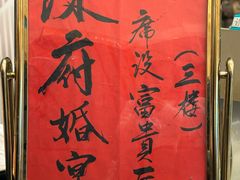 陳府婚宴
席设富貴
(三樓)